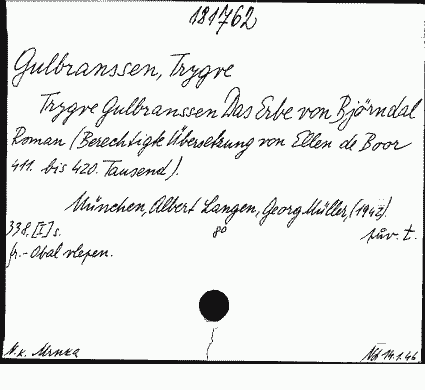 181762
Gulbranssen, Trygve
Trygve Gulbranssen Das Erbe von Björndal
Roman (Berechtigte Übersetzung von Ellen de Boor
411. bis 420. Tausend).
München, Albert Langen, Georg Müller, (1942).
338, [I] s. 8° pův. t.
fr. - Obal vlepen.
N.k. Mrnka 14.1.46